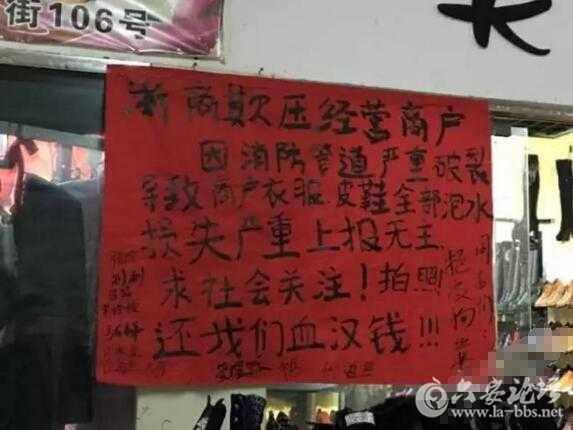 街106号
浙商欺压经营商户
因消防管道严重破裂
导致商户衣服、皮鞋全部泡水
损失严重上报无王
求社会关注!拍照
还我们血汉钱!!!
六安论坛
www.la-bbs.net